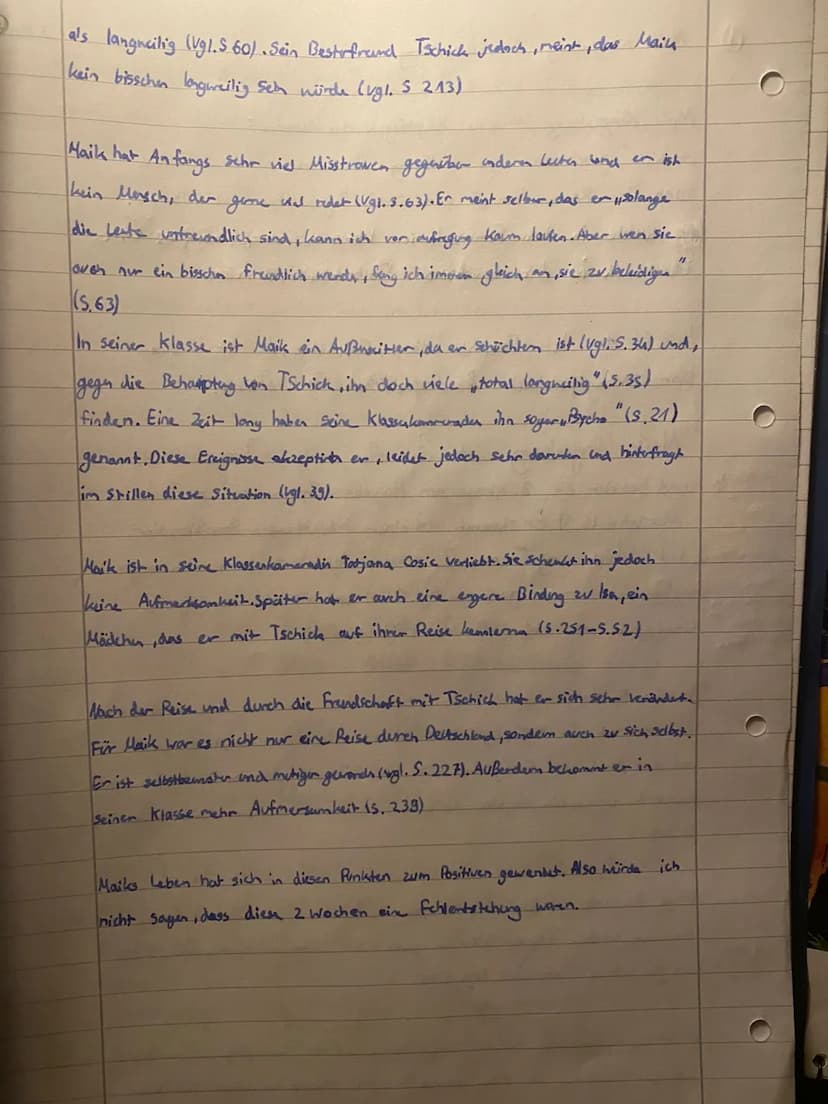 als langweilig (Vgl. S 60). Sein Bestfreund Tschick jedoch, meint, das Maik
kein bisschen langweilig sein würde (vgl. S 213)
Maik hat Anfangs sehr viel Misstrauen gegenüber anderen Leuten und er ist
kein Mensch, der gerne viel redet (Vgl. S. 63). Er meint selber, das er „solange
die Leute unfreundlich sind, kann ich vor aufregung kaum laufen. Aber wen sie
auch nur ein bisschen freundlich werden, fang ich immer gleich an, sie zu beleidigen"
(S. 63)
In seiner Klasse ist Maik ein Außenseiter, da er schüchtern ist (Vgl. S. 34) und,
gegen die Behauptung von Tschick, ihn doch viele „total langweilig" (S. 35)
finden. Eine Zeit lang haben seine Klassenkammeraden ihn sogar „Psycho" (S. 21)
genannt. Diese Ereignisse akzeptiert er, leidet jedoch sehr darunter und hinterfragt
im Stillen diese Situation (Vgl. 39).
Maik ist in seine Klassenkameradin Tatjana Cosic verliebt. Sie schenkt ihn jedoch
keine Aufmerksamkeit. Später hat er auch eine engere Bindung zu Isa, ein
Mädchen, das er mit Tschick auf ihrer Reise (S. 251-S.52)
Nach der Reise und durch die Freundschaft mit Tschick hat er sich sehr verändert.
Für Maik war es nicht nur eine Reise durch Deutschland, sondern auch zu sich selbst.
Er ist und mutiger geworden (vgl. S. 227). Außerdem bekommt er in
seiner Klasse mehr Aufmersamkeit (S. 239)
Maiks Leben hat sich in diesen Punkten zum Positiven gewendet. Also würde ich
nicht sagen, dass diese 2 Wochen eine waren.